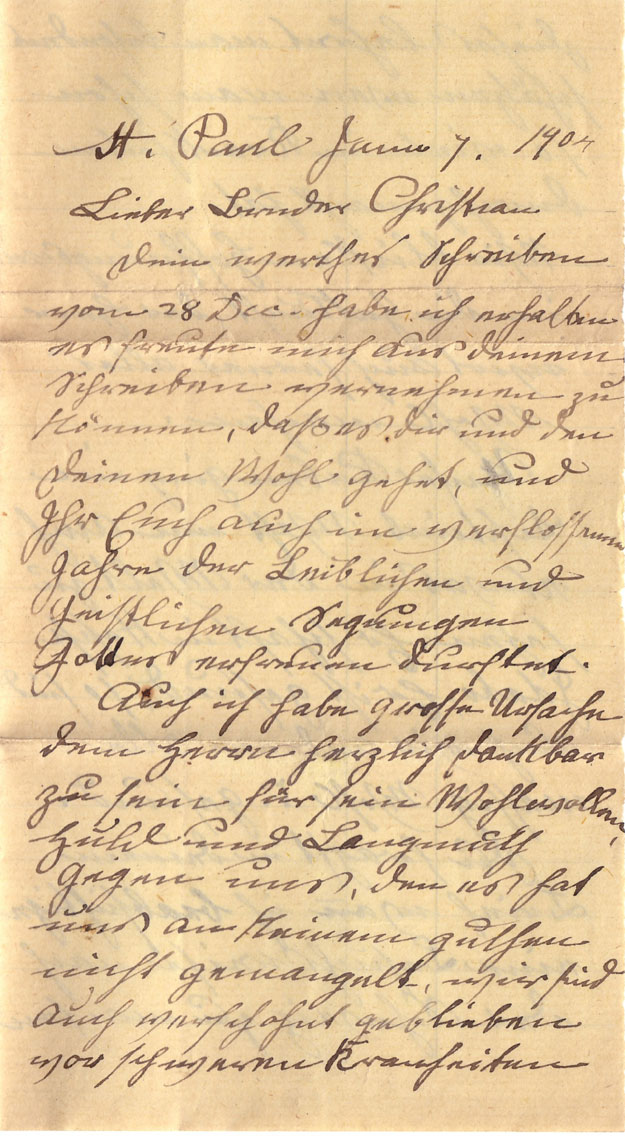 St. Paul Jann 7. 1904
Lieber Bruder Christian
Dein werthes Schreiben
vom 28 Dec. habe ich erhalten
es freute mich aus deinem
Schreiben vernehmen zu
können, daß es dir und den
deinen Wohl gehet, und
Ihr Euch auch im verflossenen
Jahre der Leiblichen und
Geistlichen Segnungen
Gottes erfreuen durftet.
Auch ich habe grosse Ursache
dem Herrn herzlich dankbar
zu sein für sein Wohlwollen,
Huld und Langmuth
gegen uns, den es hat
uns an keinem guthen
nicht gemangelt, wir sind
auch verschohnt geblieben
vor schweren Kranheiten